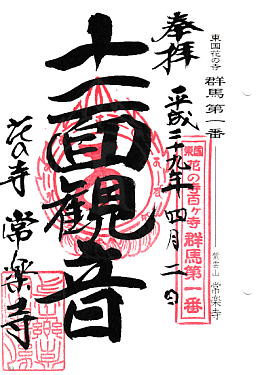 東国花の寺
群馬 第一番
紫雲山 常楽寺
奉拝
平成二十九年四月二日
東国花の寺百ヶ寺群馬第一番
十一面観音
花の寺 常楽寺